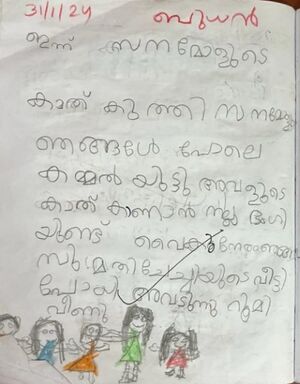 31/1/24 ബുധൻ
ഇന്ന് സനമോളുടെ
കാത് കുത്തി സനമോളു
ഞങ്ങളെ പോലെ
കമ്മൽ യിട്ടു അവളുടെ
കാത് കാണാൻ നല്ല ഭംഗി
യുണ്ട് വൈകുന്നേരം ഞങ്ങ
സുമതിച്ചേച്ചിയുടെ വീട്ടി
പോയി അവടുന്നു റൂമി
വീണു